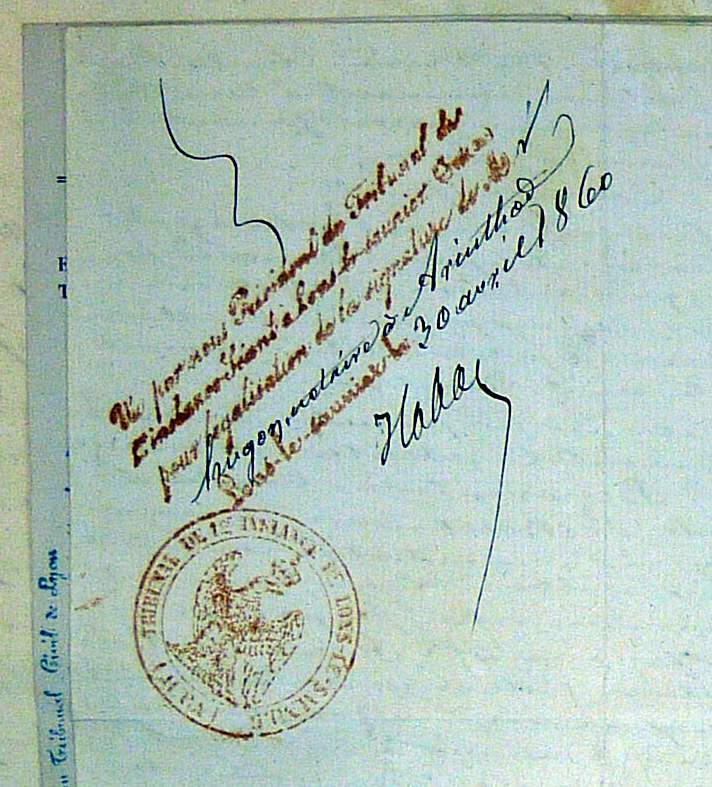 Vu par nous Président du Tribunal de
1re instance séant à Lons-le-saunier (Jura)
pour légalisation de la signature de Me
hugon, notaire à Arinthod
Lons-le-saunier le 30 avril 1860
TRIBUNAL DE 1re INSTANCE DE LONS-LE-SAUNIER (JURA)
Tribunal Civil de Lyon